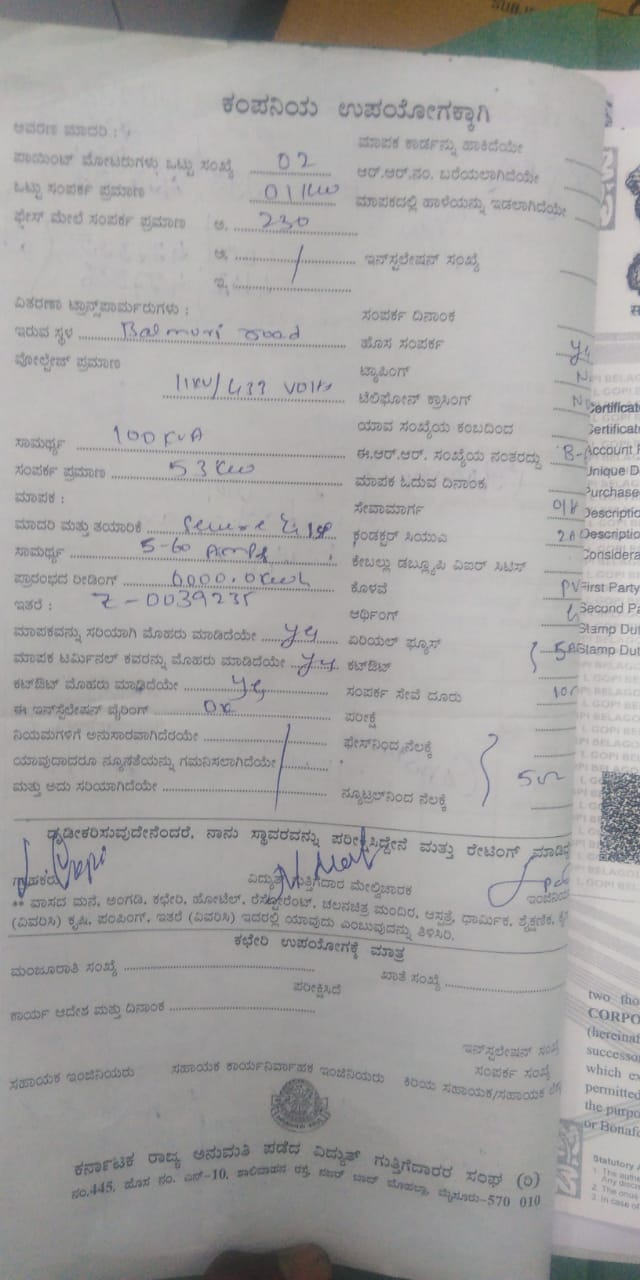 ಕಂಪನಿಯ ಉಪಯೋಗಕ್ಕಾಗಿ
ಆವರಣ ಮಾದರಿ :
ಮಾಪಕ ಕಾರ್ಡನ್ನು ಹಾಕಿದೆಯೇ
ಪಾಯಿಂಟ್ ಮೋಟರುಗಳು ಒಟ್ಟು ಸಂಖ್ಯೆ 02
ಆರ್.ಆರ್.ನಂ. ಬರೆಯಲಾಗಿದೆಯೇ
ಒಟ್ಟು ಸಂಪರ್ಕ ಪ್ರಮಾಣ 01 KW
ಮಾಪಕದಲ್ಲಿ ಹಾಳೆಯನ್ನು ಇಡಲಾಗಿದೆಯೇ
ಫೇಸ್ ಮೇಲೆ ಸಂಪರ್ಕ ಪ್ರಮಾಣ ಅ. 230
ಆ.
ಇನ್‌ಸ್ಟಲೇಷನ್ ಸಂಖ್ಯೆ
ಇ.
ವಿತರಣಾ ಟ್ರಾನ್ಸ್‌ಫಾರ್ಮರುಗಳು :
ಸಂಪರ್ಕ ದಿನಾಂಕ
ಇರುವ ಸ್ಥಳ Balmuri road
ಹೊಸ ಸಂಪರ್ಕ
ವೋಲ್ಟೇಜ್ ಪ್ರಮಾಣ
ಟ್ಯಾಪಿಂಗ್
11KV/433 Volts
ಟೆಲಿಫೋನ್ ಕ್ರಾಸಿಂಗ್
ಯಾವ ಸಂಖ್ಯೆಯ ಕಂಬದಿಂದ
ಸಾಮರ್ಥ್ಯ 100 KVA
ಈ.ಆರ್.ಆರ್. ಸಂಖ್ಯೆಯ ನಂತರದ್ದು
ಸಂಪರ್ಕ ಪ್ರಮಾಣ 53 KW
ಮಾಪಕ ಓದುವ ದಿನಾಂಕ
ಮಾಪಕ :
ಸೇವಾಮಾರ್ಗ
ಮಾದರಿ ಮತ್ತು ತಯಾರಿಕೆ
ಕಂಡಕ್ಟರ್ ಸಿಯುಎ
ಸಾಮರ್ಥ್ಯ 5-60 Amps
ಕೇಬಲ್ಲು ಡಬ್ಲ್ಯೂಪಿ ಎಐಆರ್ ಸಿಟಿಸ್
ಪ್ರಾರಂಭದ ರೀಡಿಂಗ್ 0000.0 Kwh
ಕೊಳವೆ
ಇತರೆ : Z-0039235
ಅರ್ಥಿಂಗ್
ಮಾಪಕವನ್ನು ಸರಿಯಾಗಿ ಮೊಹರು ಮಾಡಿದೆಯೇ yes
ಏರಿಯಲ್ ಫ್ಯೂಸ್
ಮಾಪಕ ಟರ್ಮಿನಲ್ ಕವರನ್ನು ಮೊಹರು ಮಾಡಿದೆಯೇ yes
ಕಟ್‌ಔಟ್
ಕಟ್‌ಔಟ್ ಮೊಹರು ಮಾಡಿದೆಯೇ yes
ಸಂಪರ್ಕ ಸೇವೆ ದೂರು
ಈ ಇನ್‌ಸ್ಟಲೇಷನ್ ವೈರಿಂಗ್ OK
ಪರೀಕ್ಷೆ
ನಿಯಮಗಳಿಗೆ ಅನುಸಾರವಾಗಿದೆಯೇ
ಫೇಸ್‌ನಿಂದ ನೆಲಕ್ಕೆ
ಯಾವುದಾದರೂ ನ್ಯೂನತೆಯನ್ನು ಗಮನಿಸಲಾಗಿದೆಯೇ
ಮತ್ತು ಅದು ಸರಿಯಾಗಿದೆಯೇ
ನ್ಯೂಟ್ರಲ್‌ನಿಂದ ನೆಲಕ್ಕೆ
ದೃಢೀಕರಿಸುವುದೇನೆಂದರೆ, ನಾನು ಸ್ಥಾವರವನ್ನು ಪರೀಕ್ಷಿಸಿದ್ದೇನೆ ಮತ್ತು ರೇಟಿಂಗ್
ಗ್ರಾಹಕರು ವಿದ್ಯುತ್ ಗುತ್ತಿಗೆದಾರ ಮೇಲ್ವಿಚಾರಕ
** ವಾಸದ ಮನೆ, ಅಂಗಡಿ, ಕಛೇರಿ, ಹೋಟೆಲ್, ರೆಸ್ಟೋರೆಂಟ್, ಚಲನಚಿತ್ರ ಮಂದಿರ, ಆಸ್ಪತ್ರೆ, ಧಾರ್ಮಿಕ, ಶೈಕ್ಷಣಿಕ,
(ವಿವರಿಸಿ) ಕೃಷಿ, ಪಂಪಿಂಗ್, ಇತರೆ (ವಿವರಿಸಿ) ಇದರಲ್ಲಿ ಯಾವುದು ಎಂಬುವುದನ್ನು ತಿಳಿಸಿರಿ.
ಕಛೇರಿ ಉಪಯೋಗಕ್ಕೆ ಮಾತ್ರ
ಮಂಜೂರಾತಿ ಸಂಖ್ಯೆ
ಖಾತೆ ಸಂಖ್ಯೆ
ಪರೀಕ್ಷಿಸಿದೆ
ಕಾರ್ಯ ಆದೇಶ ಮತ್ತು ದಿನಾಂಕ
ಇನ್‌ಸ್ಟಲೇಷನ್ ಸಂಖ್ಯೆ
ಸಂಪರ್ಕ ಸಂಖ್ಯೆ
ಸಹಾಯಕ ಇಂಜಿನಿಯರು ಸಹಾಯಕ ಕಾರ್ಯನಿರ್ವಾಹಕ ಇಂಜಿನಿಯರು ಕಿರಿಯ ಸಹಾಯಕ/ಸಹಾಯಕ
ಕರ್ನಾಟಕ ರಾಜ್ಯ ಅನುಮತಿ ಪಡೆದ ವಿದ್ಯುತ್ ಗುತ್ತಿಗೆದಾರರ ಸಂಘ (ರಿ)
ನಂ.445, ಹೊಸ ನಂ. ಎನ್-10, ಶಾಲಿವಾಹನ ರಸ್ತೆ, ನಜರ್ ಬಾದ್ ಮೊಹಲ್ಲಾ, ಮೈಸೂರು-570 010
Account
Unique D
Purchase
Descriptio
Descriptio
Considera
First Party
Second Pa
Stamp Dut
Stamp Dut
two tho
CORPO
(hereinaf
successo
which ex
permitted
the purpo
or Bonaf
Statutory